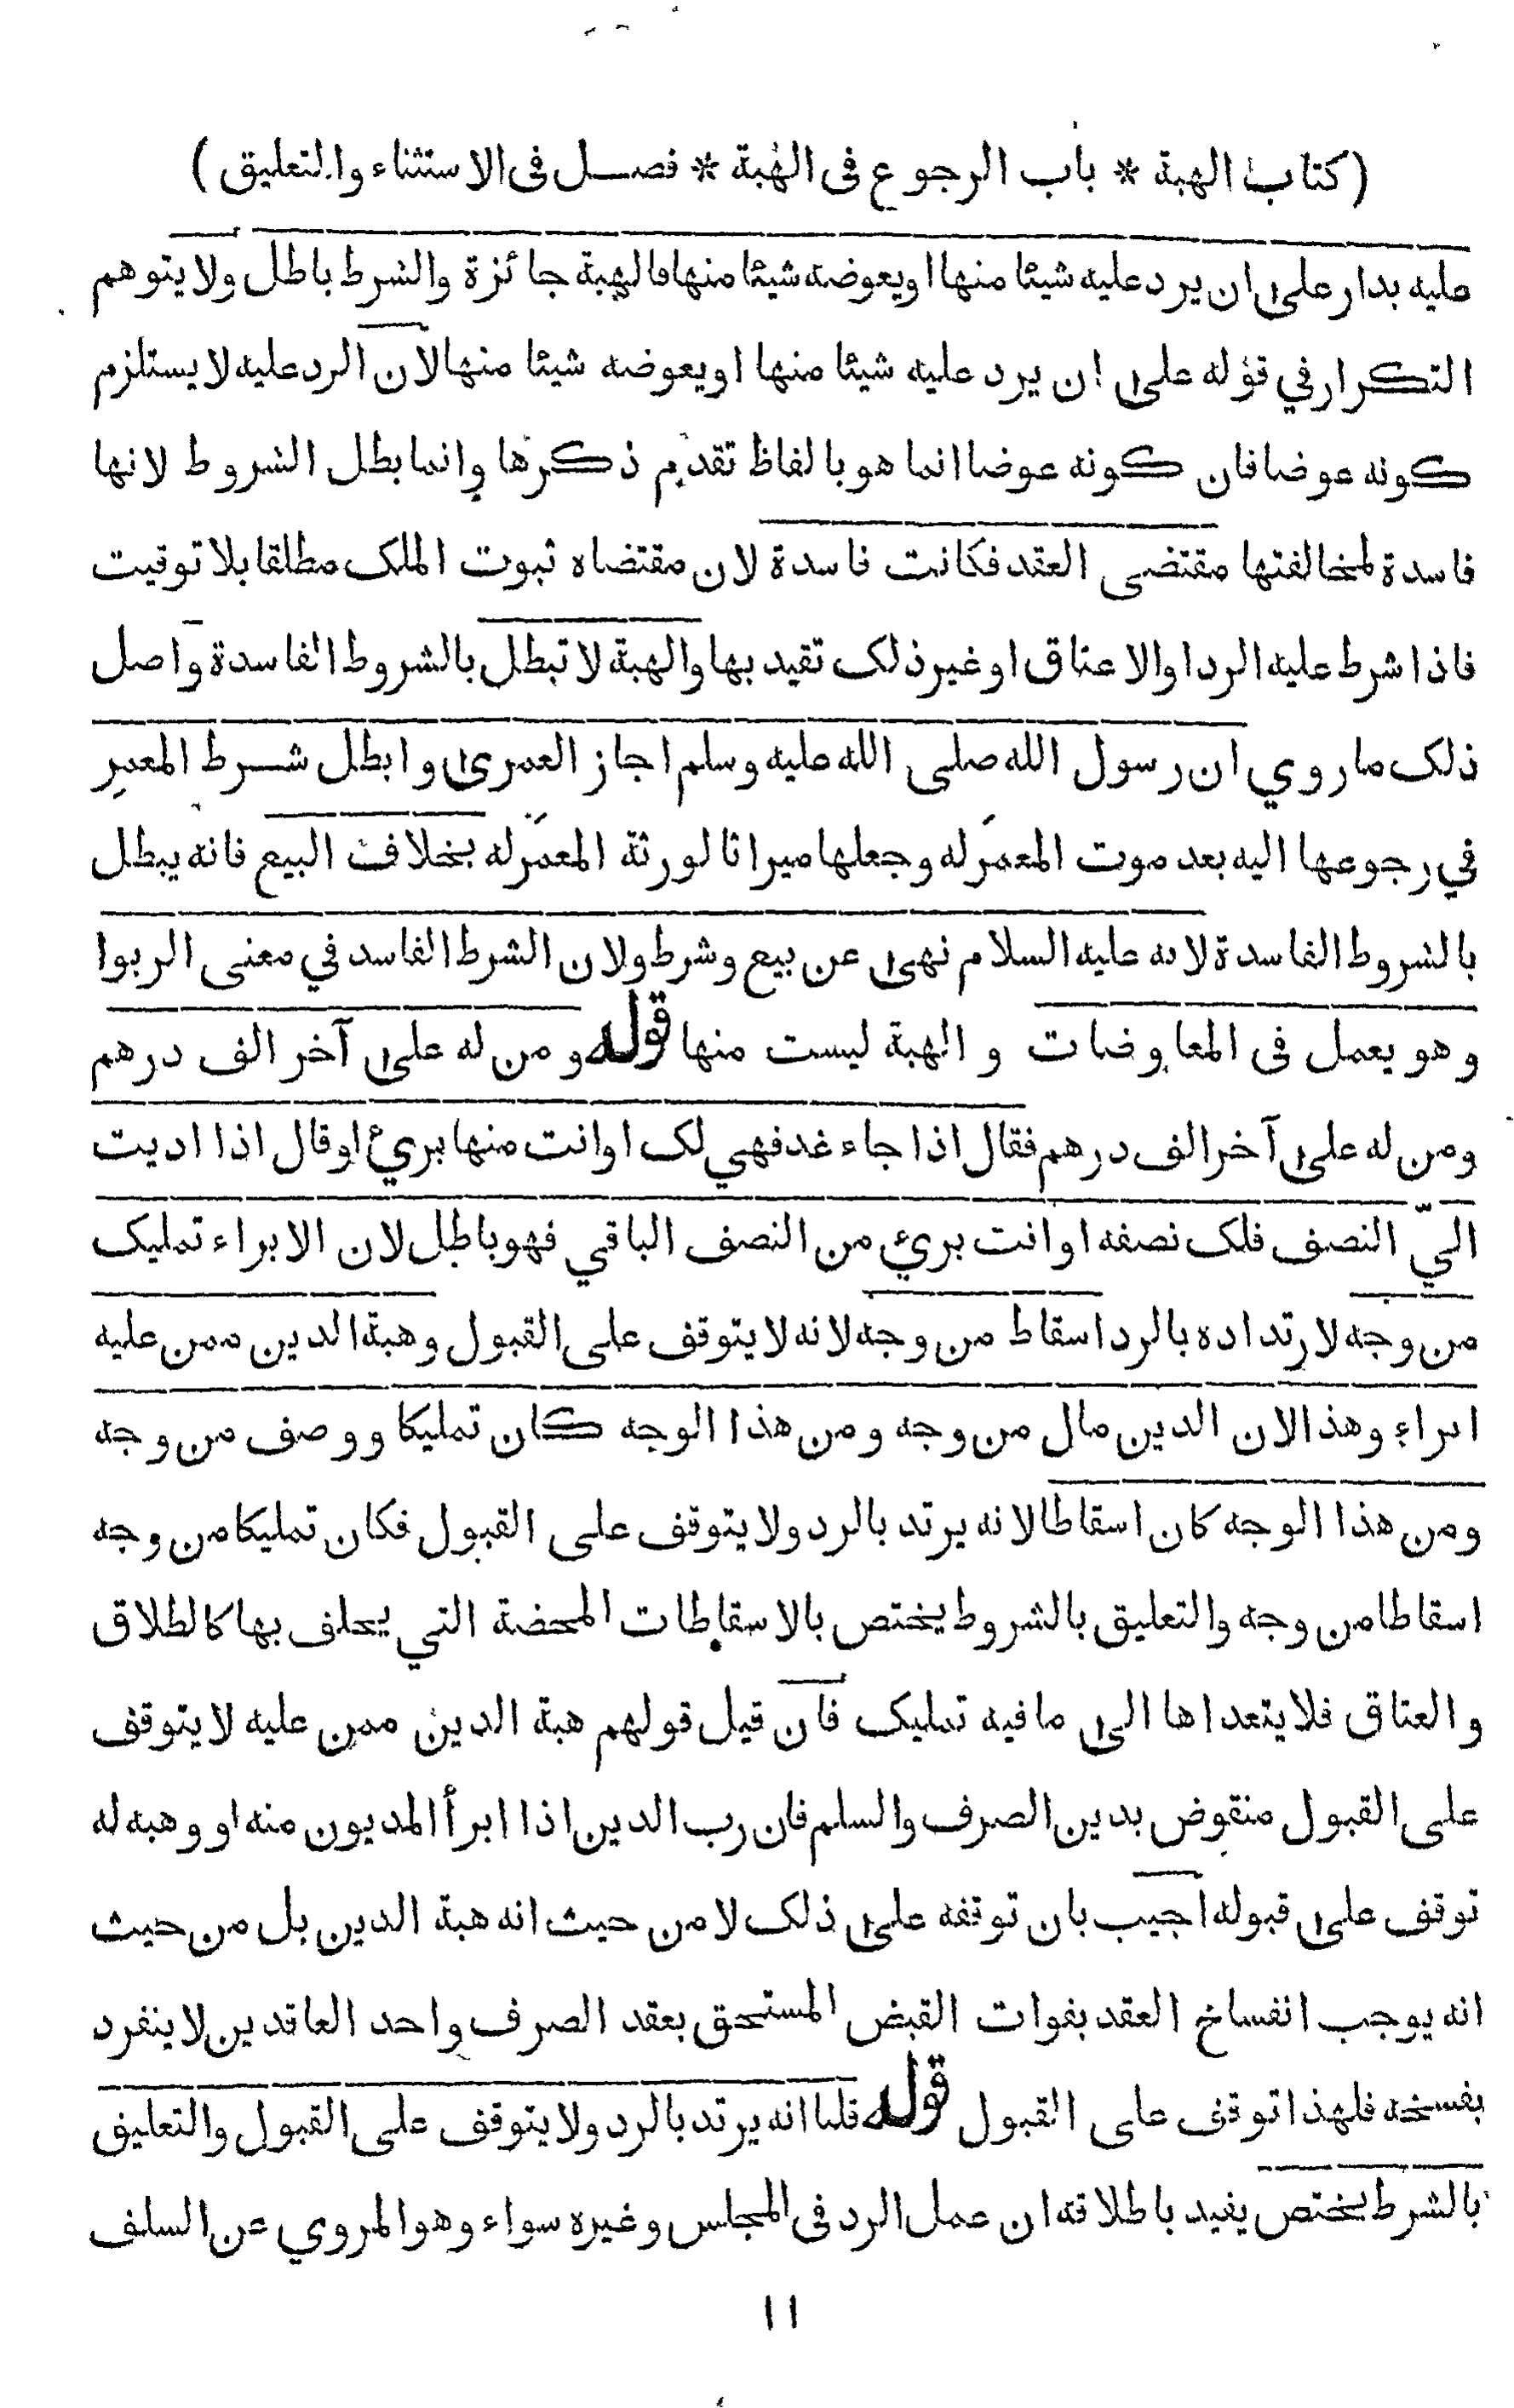 (كتاب الهبة * باب الرجوع فى الهبة * فصل فى الاستثناء والتعليق)
عليه بدار على ان يرد عليه شيئا منها او يعوضه شيئا منها فالهبة جائزة والشرط باطل ولا يتوهم
التكرار في قوله على ان يرد عليه شيئا منها او يعوضه شيئا منها لان الرد عليه لا يستلزم
كونه عوضا فان كونه عوضا انما هو بالفاظ تقدم ذكرها وانما بطل الشروط لانها
فاسدة لمخالفتها مقتضى العقد فكانت فاسدة لان مقتضاه ثبوت الملك مطلقا بلا توقيت
فاذا شرط عليه الرد او الاعتاق او غير ذلك تقيد بها والهبة لا تبطل بالشروط الفاسدة واصل
ذلك ما روي ان رسول الله صلى الله عليه وسلم اجاز العمرى وابطل شرط المعمر
في رجوعها اليه بعد موت المعمر له وجعلها ميراثا لورثة المعمّر له بخلاف البيع فانه يبطل
بالشروط الفاسدة لانه عليه السلام نهى عن بيع وشرط ولان الشرط الفاسد في معنى الربوا
وهو يعمل فى المعاوضات و الهبة ليست منها قوله و من له على آخر الف درهم
ومن له على آخر الف درهم فقال اذا جاء غد فهي لك او انت منها بريئ او قال اذا اديت
اليّ النصف فلك نصفه او انت بريئ من النصف الباقي فهو باطل لان الابراء تمليك
من وجه لارتداده بالرد اسقاط من وجه لانه لا يتوقف على القبول وهبة الدين ممن عليه
ابراء وهذا لان الدين مال من وجه ومن هذا الوجه كان تمليكا ووصف من وجه
ومن هذا الوجه كان اسقاطا لانه يرتد بالرد ولا يتوقف على القبول فكان تمليكا من وجه
اسقاطا من وجه والتعليق بالشروط يختص بالاسقاطات المحضة التي يحلف بها كالطلاق
والعتاق فلا يتعداها الى ما فيه تمليك فان قيل قولهم هبة الدين ممن عليه لا يتوقف
على القبول منقوض بدين الصرف والسلم فان رب الدين اذا ابرأ المديون منه او وهبه له
توقف على قبوله اجيب بان توقفه على ذلك لا من حيث انه هبة الدين بل من حيث
انه يوجب انفساخ العقد بفوات القبض المستحق بعقد الصرف واحد العاقدين لا ينفرد
بفسخه فلهذا توقف على القبول قوله قلنا انه يرتد بالرد ولا يتوقف على القبول والتعليق
بالشرط يختص يفيد باطلاقه ان عمل الرد فى المجلس وغيره سواء وهو المروي عن السلف
١١